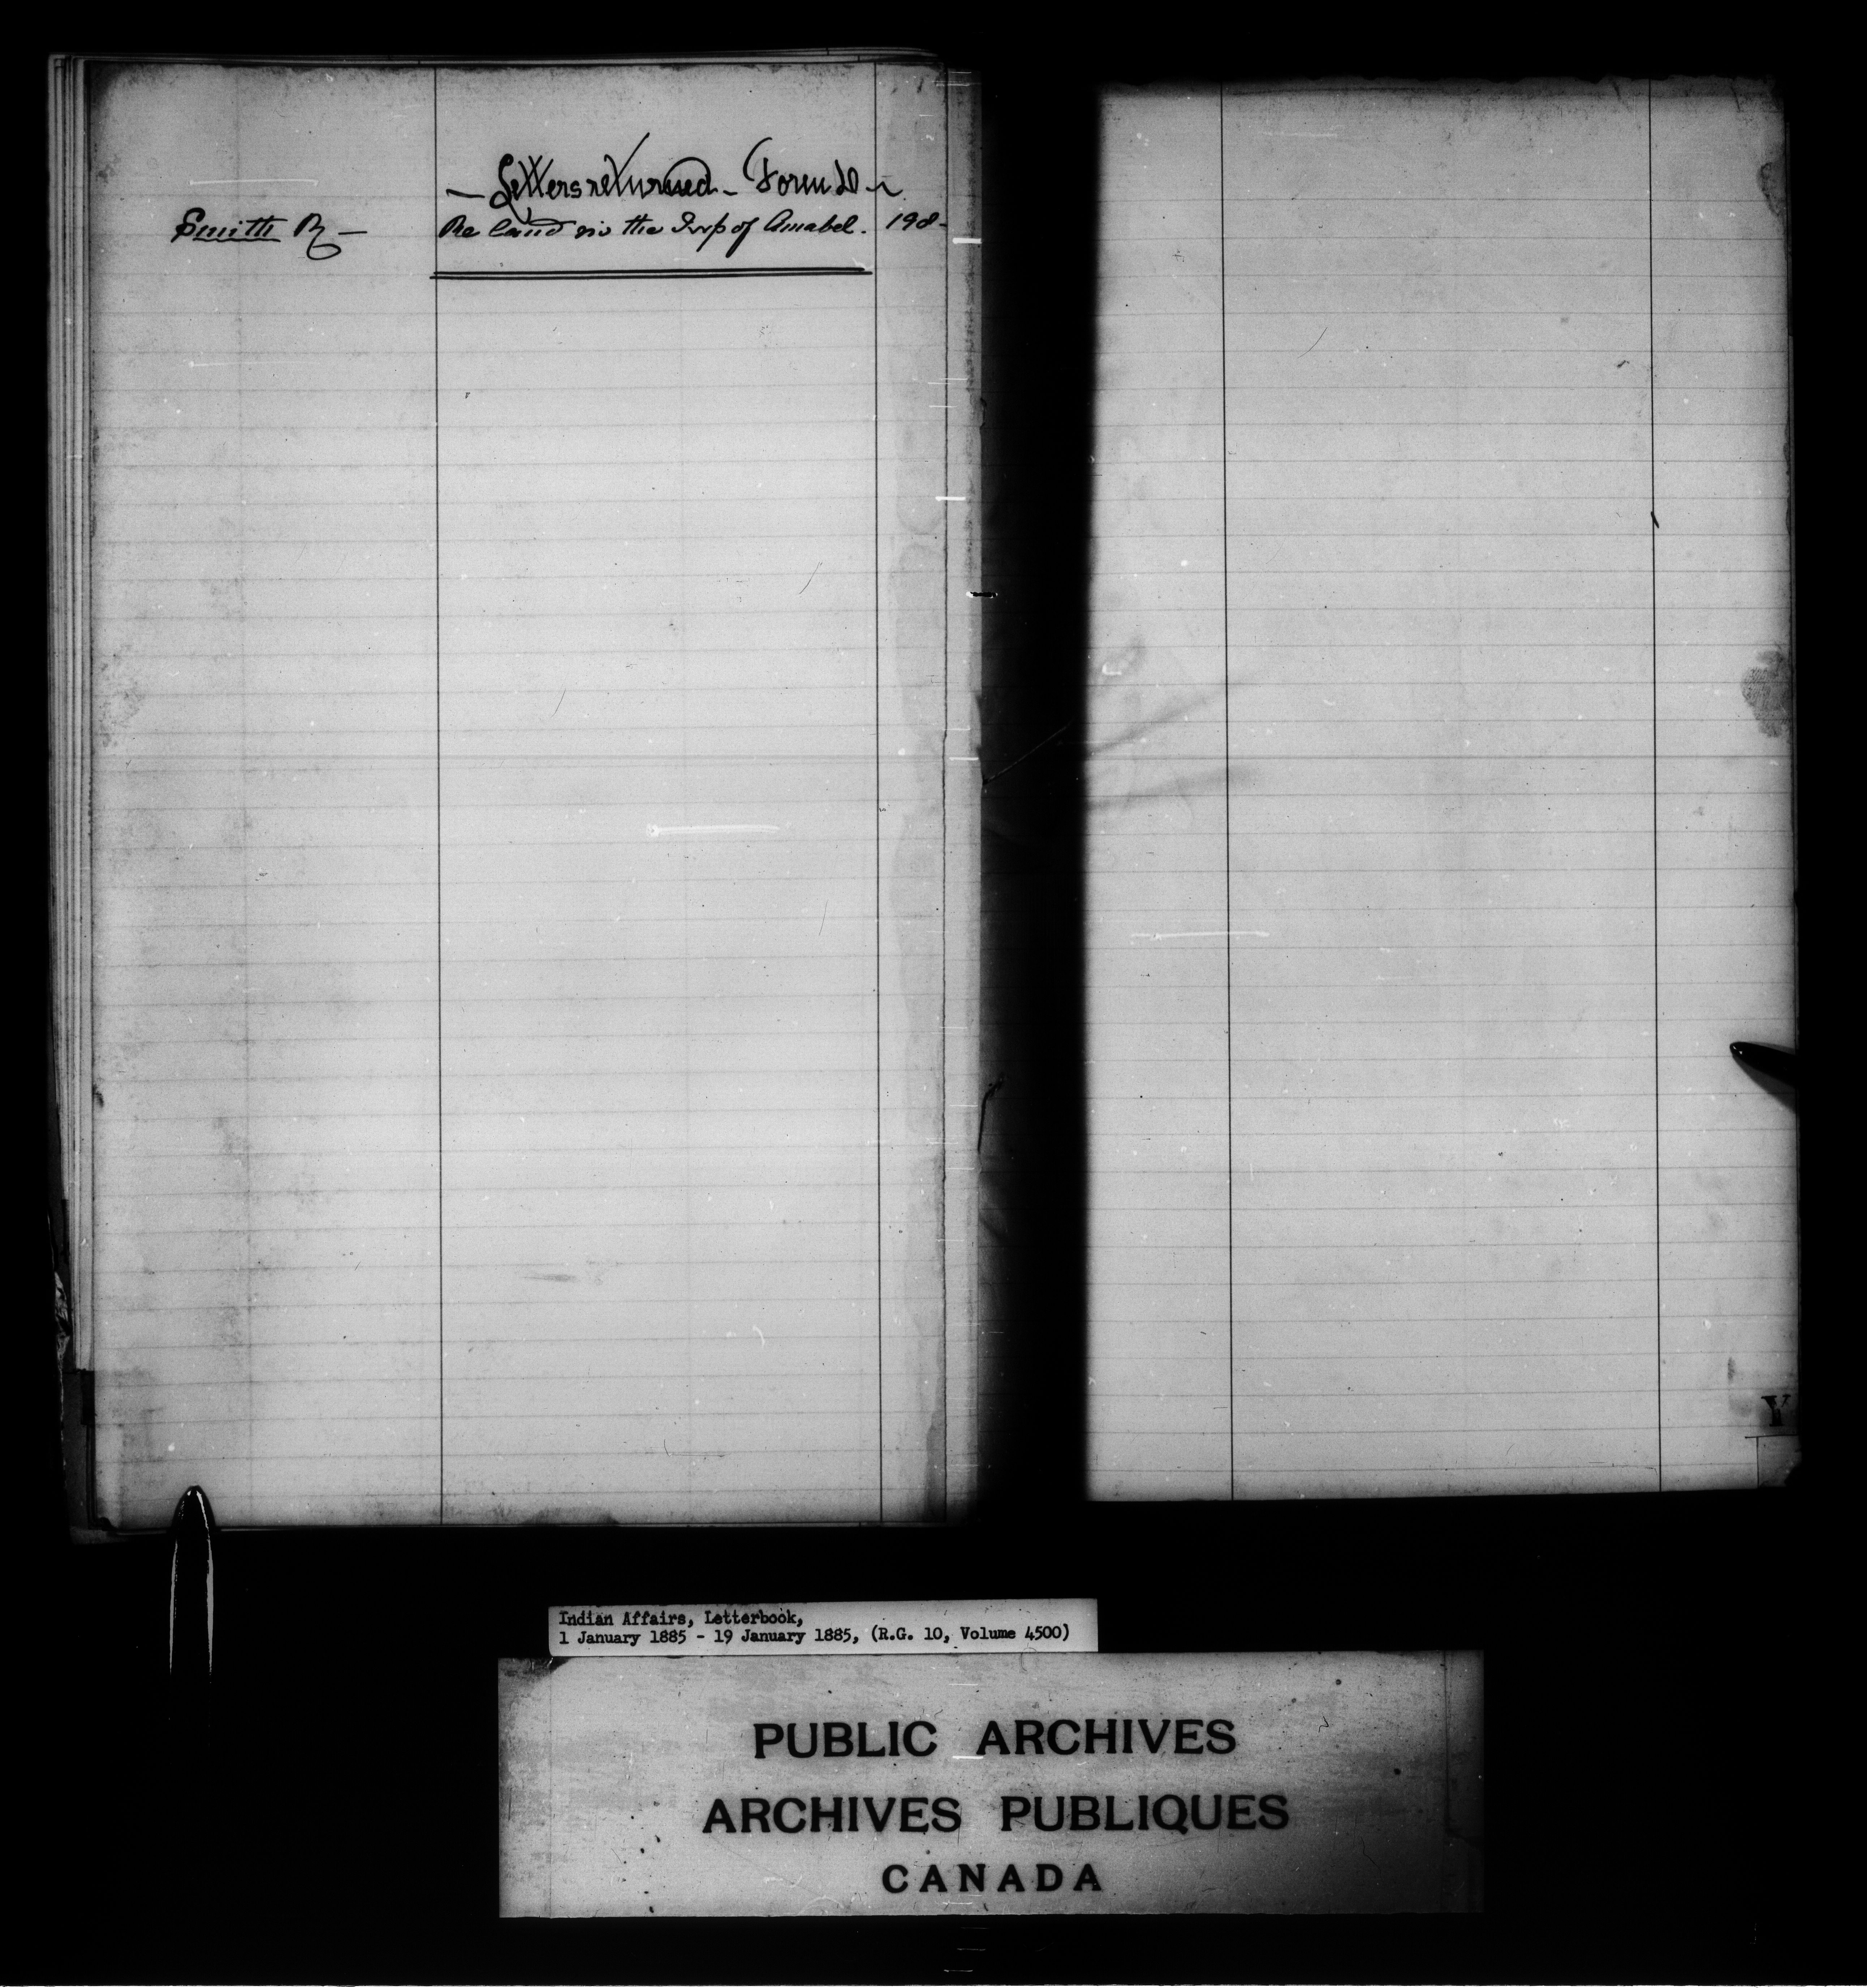 — Letters returned — Form D —
Smith R — Re land in the Twp of Amabel. 198-
Y
Indian Affairs, Letterbook,
1 January 1885 - 19 January 1885, (R.G. 10, Volume 4500)
PUBLIC ARCHIVES
ARCHIVES PUBLIQUES
CANADA